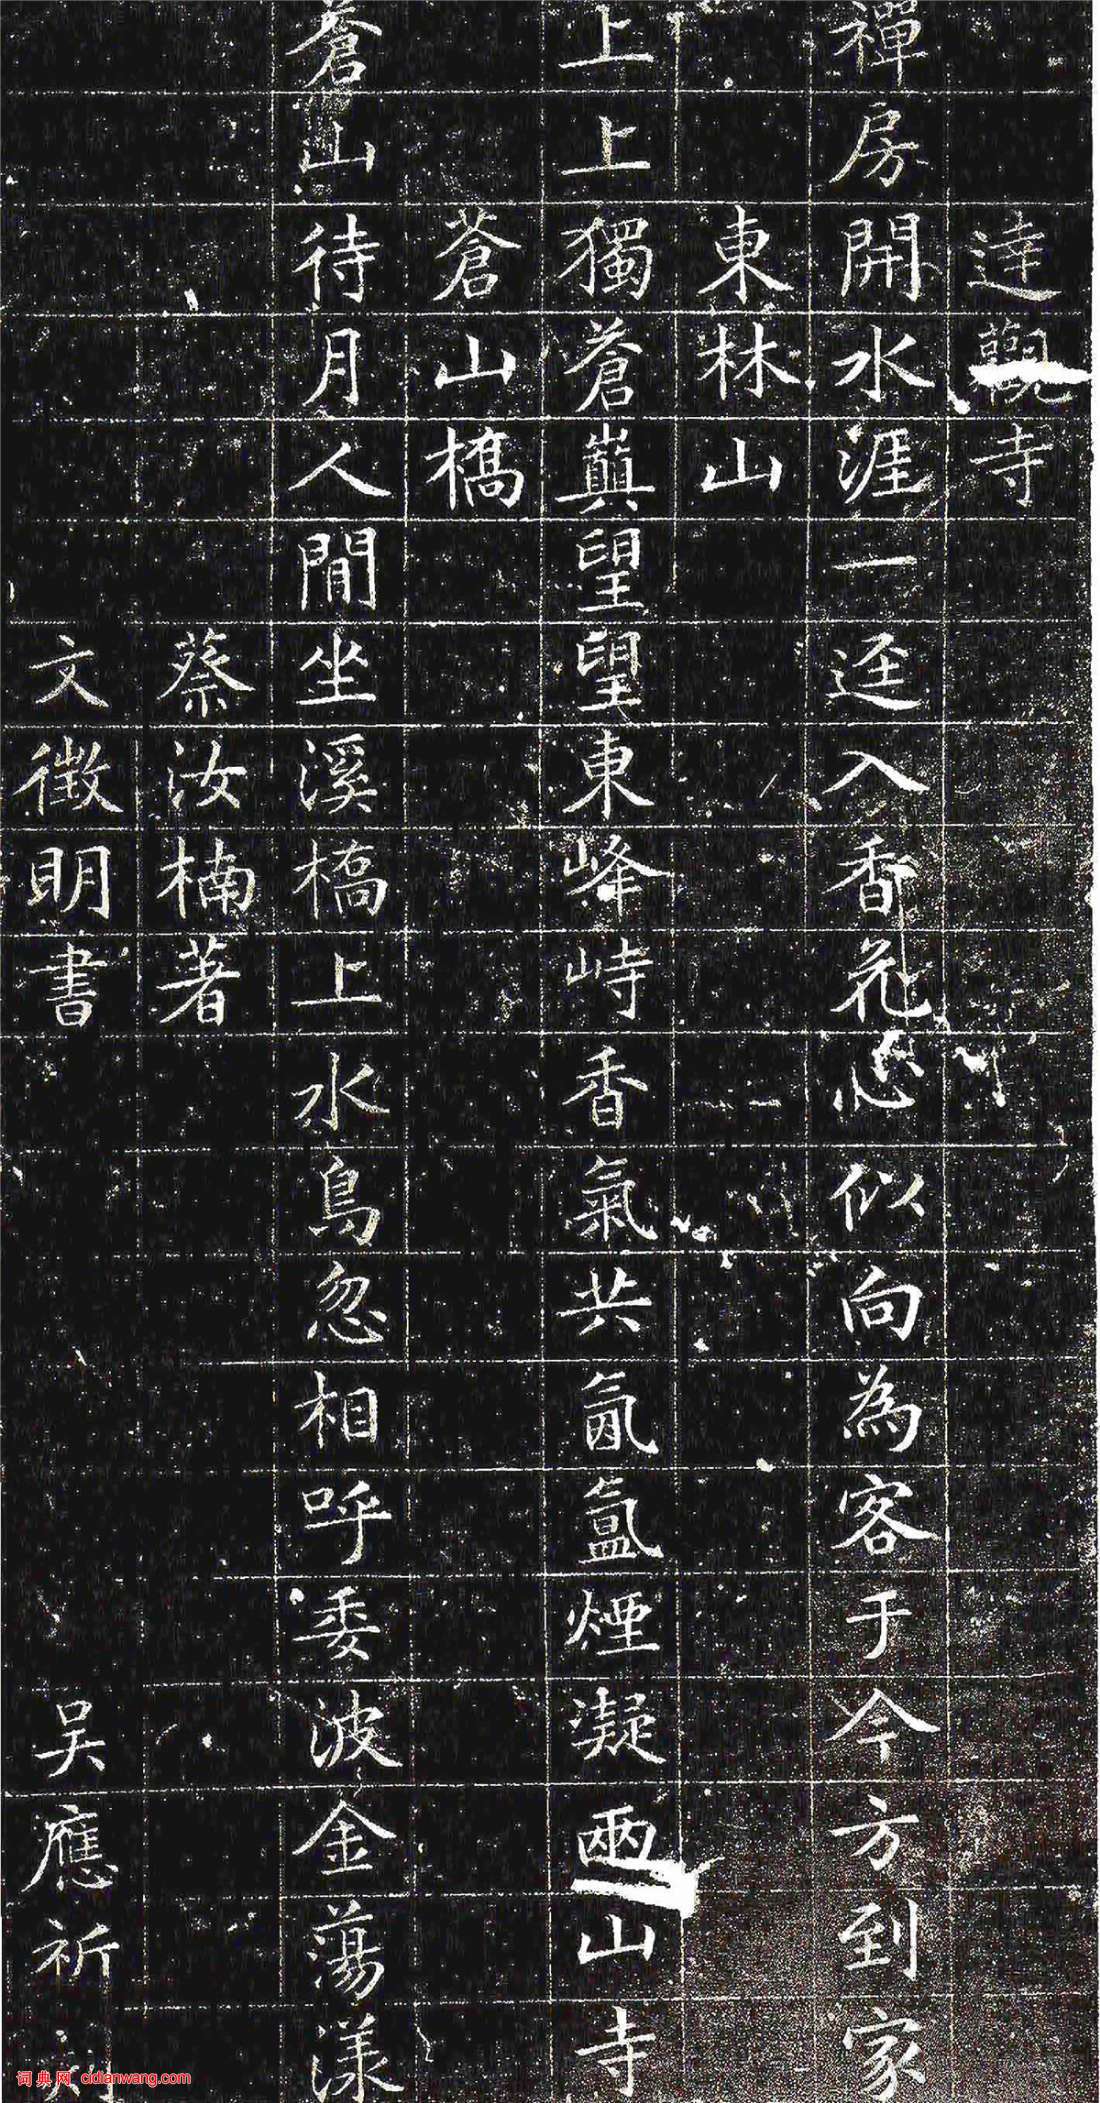 達觀寺
禪房開水涯一迳入香花恍似向為客于今方到家
東林山
上上獨蒼巔望望東峰峙香氣共氤氳煙凝兩山寺
蒼山橋
蒼山待月人閒坐溪橋上水鳥忽相呼委波金蕩漾
蔡汝楠著
文徵明書
吴應祈刻
词典网 cidianwang.com